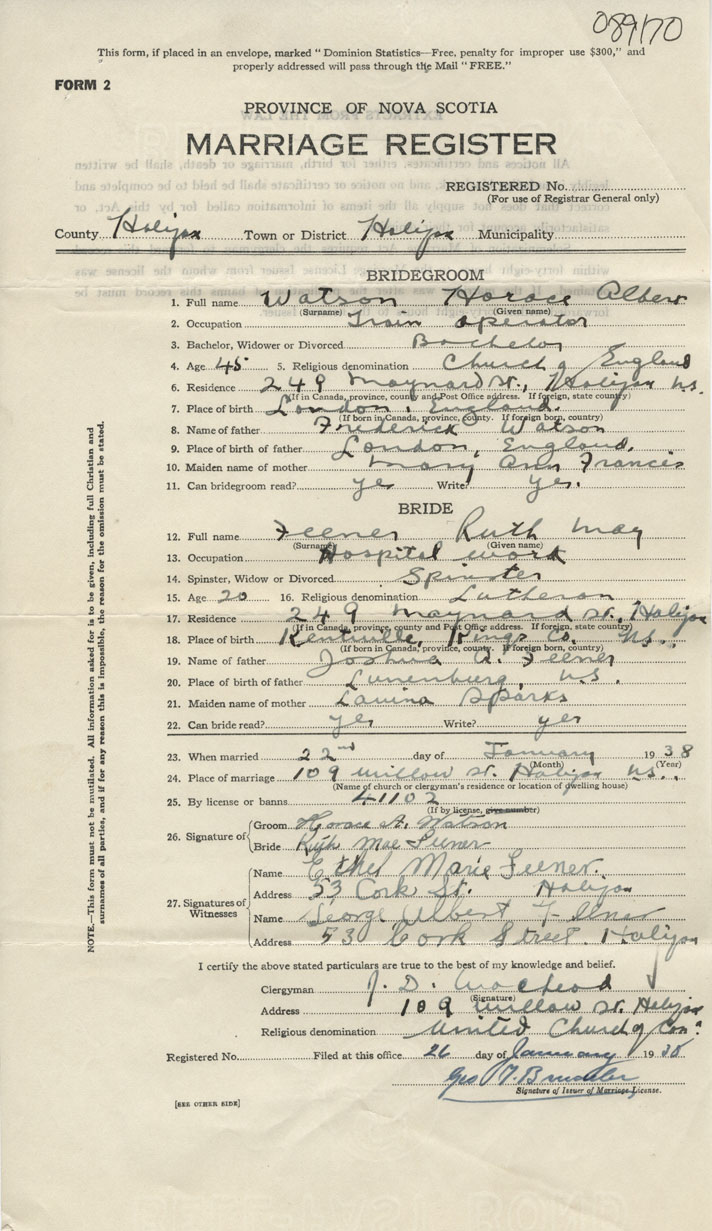 089170
This form, if placed in an envelope, marked "Dominion Statistics—Free, penalty for improper use $300," and
properly addressed will pass through the Mail "FREE."
FORM 2
PROVINCE OF NOVA SCOTIA
MARRIAGE REGISTER
REGISTERED No.
(For use of Registrar General only)
County Halifax Town or District Halifax Municipality
BRIDEGROOM
1. Full name Watson Horace Albert
(Surname) (Given name)
2. Occupation Train operator
3. Bachelor, Widower or Divorced Bachelor
4. Age 45 5. Religious denomination Church of England
6. Residence 249 Maynard St., Halifax N.S.
(If in Canada, province, county and Post Office address. If foreign, state county)
7. Place of birth London, England.
(If born in Canada, province, county. If foreign born, country)
8. Name of father Frederick Watson
9. Place of birth of father London, England.
10. Maiden name of mother Mary Ann Francis
11. Can bridegroom read? yes Write? yes.
BRIDE
12. Full name Feener Ruth May
(Surname) (Given name)
13. Occupation Hospital work
14. Spinster, Widow or Divorced Spinster
15. Age 20 16. Religious denomination Lutheran
17. Residence 249 Maynard St., Halifax
(If in Canada, province, county and Post Office address. If foreign, state county)
18. Place of birth Kentville, Kings Co. N.S.
(If born in Canada, province, county. If foreign born, country)
19. Name of father Joshua A. Feener
20. Place of birth of father Lunenburg, N.S.
21. Maiden name of mother Lavina Sparks
22. Can bride read? yes Write? yes
23. When married 22nd day of January 1938
(Month) (Year)
24. Place of marriage 109 Willow St. Halifax N.S.
(Name of church or clergyman's residence or location of dwelling house)
25. By license or banns 41102
(If by license, give number)
26. Signature of
Groom Horace A. Watson
Bride Ruth Mae Feener
27. Signatures of Witnesses
Name Ethel Marie Feener.
Address 53 Cork St. Halifax
Name George Albert Feener
Address 53 Cork Street. Halifax
I certify the above stated particulars are true to the best of my knowledge and belief.
Clergyman J. D. MacLeod
(Signature)
Address 109 Willow St. Halifax
Religious denomination United Church of Can.
Registered No. Filed at this office 26 day of January 1938
Geo
Signature of Issuer of Marriage License.
[SEE OTHER SIDE]
NOTE.—This form must not be mutilated. All information asked for is to be given, including full Christian and
surnames of all parties, and if for any reason this is impossible, the reason for the omission must be stated.